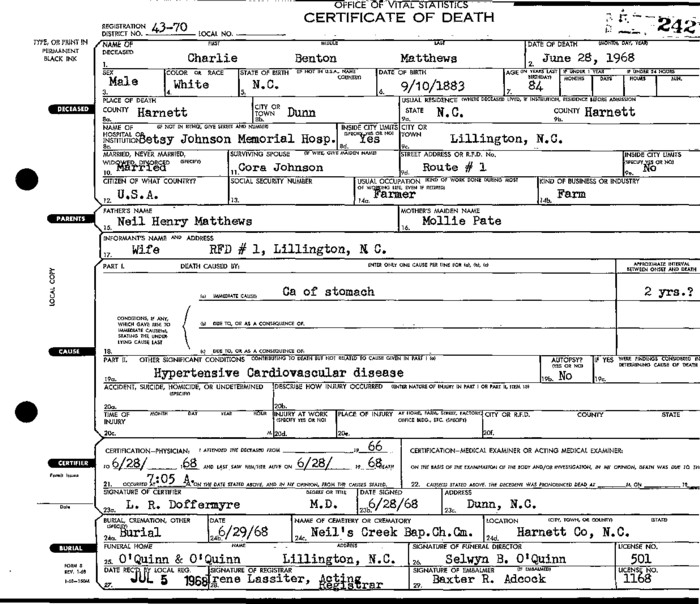 OFFICE OF VITAL STATISTICS
CERTIFICATE OF DEATH
REGISTRATION DISTRICT NO. 43-70 LOCAL NO. 242
TYPE, OR PRINT IN PERMANENT BLACK INK
NAME OF DECEASED FIRST MIDDLE LAST DATE OF DEATH (MONTH, DAY, YEAR)
1. Charlie Benton Matthews 2. June 28, 1968
SEX COLOR OR RACE STATE OF BIRTH (IF NOT IN U.S.A., NAME COUNTRY) DATE OF BIRTH AGE (IN YEARS LAST BIRTHDAY) IF UNDER 1 YEAR IF UNDER 24 HOURS
MONTHS DAYS HOURS MIN.
3. Male 4. White 5. N.C. 6. 9/10/1883 7. 84
DECEASED
PLACE OF DEATH USUAL RESIDENCE (WHERE DECEASED LIVED, IF INSTITUTION, RESIDENCE BEFORE ADMISSION)
COUNTY Harnett CITY OR TOWN Dunn STATE N.C. COUNTY Harnett
8a. 8b. 9a. 9b.
NAME OF HOSPITAL OR INSTITUTION (IF NOT IN EITHER, GIVE STREET AND NUMBER) INSIDE CITY LIMITS (SPECIFY YES OR NO) CITY OR TOWN
8c. Betsy Johnson Memorial Hosp. 8d. Yes 9c. Lillington, N.C.
MARRIED, NEVER MARRIED, WIDOWED, DIVORCED (SPECIFY) SURVIVING SPOUSE (IF WIFE, GIVE MAIDEN NAME) STREET ADDRESS OR R.F.D. No. INSIDE CITY LIMITS (SPECIFY YES OR NO)
10. Married 11. Cora Johnson 9d. Route # 1 9e. No
CITIZEN OF WHAT COUNTRY? SOCIAL SECURITY NUMBER USUAL OCCUPATION (KIND OF WORK DONE DURING MOST OF WORKING LIFE, EVEN IF RETIRED) KIND OF BUSINESS OR INDUSTRY
12. U.S.A. 13. 14a. Farmer 14b. Farm
PARENTS
FATHER'S NAME MOTHER'S MAIDEN NAME
15. Neil Henry Matthews 16. Mollie Pate
INFORMANT'S NAME AND ADDRESS
17. Wife RFD # 1, Lillington, N.C.
LOCAL COPY
PART I. DEATH CAUSED BY: ENTER ONLY ONE CAUSE PER LINE FOR (a), (b), (c) APPROXIMATE INTERVAL BETWEEN ONSET AND DEATH
(a) IMMEDIATE CAUSE: Ca of stomach 2 yrs.?
CONDITIONS, IF ANY, WHICH GAVE RISE TO IMMEDIATE CAUSE(S), STATING THE UNDERLYING CAUSE LAST
(b) DUE TO, OR AS A CONSEQUENCE OF:
18. (c) DUE TO, OR AS A CONSEQUENCE OF:
CAUSE
PART II. OTHER SIGNIFICANT CONDITIONS CONTRIBUTING TO DEATH BUT NOT RELATED TO CAUSE GIVEN IN PART I (a) AUTOPSY? (YES OR NO) IF YES WERE FINDINGS CONSIDERED IN DETERMINING CAUSE OF DEATH
19a. Hypertensive Cardiovascular disease 19b. No 19c.
ACCIDENT, SUICIDE, HOMICIDE, OR UNDETERMINED (SPECIFY) DESCRIBE HOW INJURY OCCURRED (ENTER NATURE OF INJURY IN PART I OR PART II, ITEM 18)
20a. 20b.
TIME OF INJURY MONTH DAY YEAR HOUR INJURY AT WORK (SPECIFY YES OR NO) PLACE OF INJURY AT HOME, FARM, STREET, FACTORY, OFFICE BLDG., ETC. (SPECIFY) CITY OR R.F.D. COUNTY STATE
20c. M. 20d. 20e. 20f.
CERTIFIER
CERTIFICATION—PHYSICIAN: I ATTENDED THE DECEASED FROM 19 66 CERTIFICATION—MEDICAL EXAMINER OR ACTING MEDICAL EXAMINER:
TO 6/28/ 68 AND LAST SAW HIM/HER ALIVE ON 6/28/ 19 68. DEATH ON THE BASIS OF THE EXAMINATION OF THE BODY AND/OR INVESTIGATION, IN MY OPINION, DEATH WAS DUE TO
21. OCCURRED AT 7:05 A. M. ON THE DATE STATED ABOVE, AND IN MY OPINION, FROM THE CAUSES STATED. 22. CAUSES STATED ABOVE. THE DECEDENT WAS PRONOUNCED DEAD AT M. ON 19
Permit Issued
SIGNATURE OF CERTIFIER DEGREE OR TITLE DATE SIGNED ADDRESS
23a. L. R. Doffermyre M.D. 23b. 6/28/68 23c. Dunn, N.C.
Date
BURIAL, CREMATION, OTHER (SPECIFY) DATE NAME OF CEMETERY OR CREMATORY LOCATION CITY, TOWN, OR COUNTY STATE
24a. Burial 24b. 6/29/68 24c. Neil's Creek Bap.Ch.Cm. 24d. Harnett Co, N.C.
BURIAL
FUNERAL HOME NAME ADDRESS SIGNATURE OF FUNERAL DIRECTOR LICENSE NO.
25. O'Quinn & O'Quinn Lillington, N.C. 26. Selwyn B. O'Quinn 501
FORM 8
REV. 1-68
DATE REC'D BY LOCAL REG. SIGNATURE OF REGISTRAR SIGNATURE OF EMBALMER (IF EMBALMED) LICENSE NO.
27. JUL 5 1968 28. Irene Lassiter, Acting Registrar 29. Baxter R. Adcock 1168